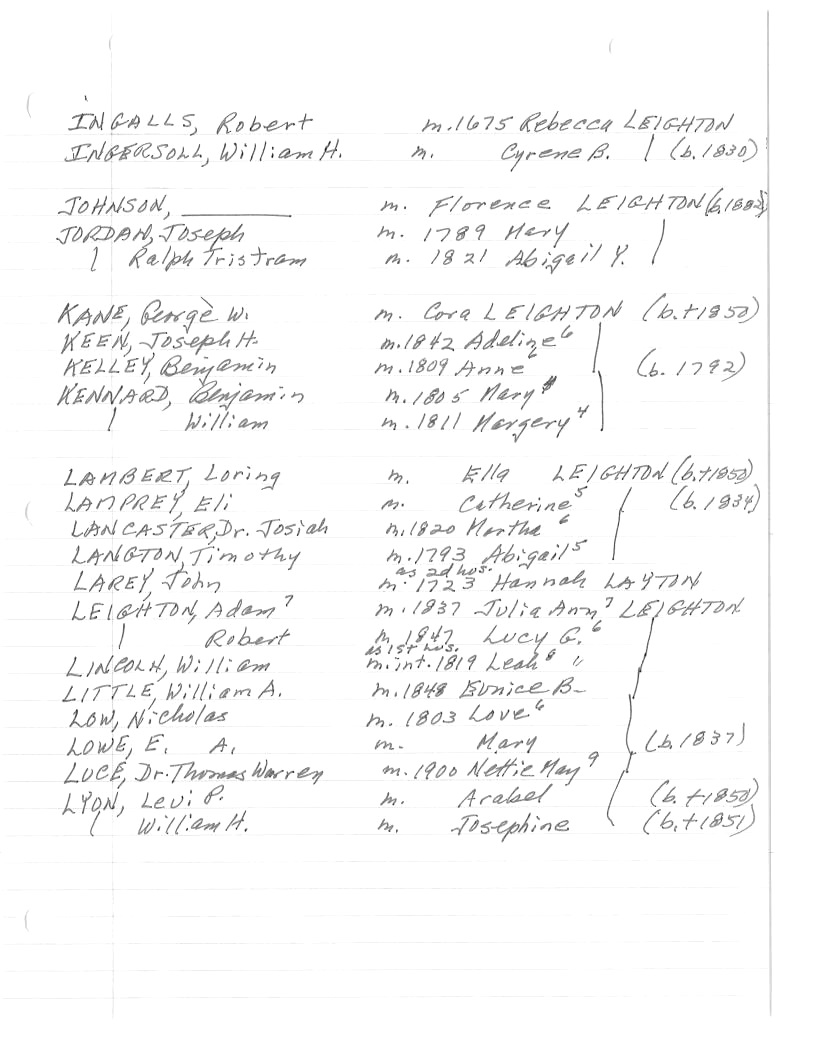 INGALLS, Robert m. 1675 Rebecca LEIGHTON
INGERSOLL, William H. m. Cyrene B. | (b. 1830)
JOHNSON, __________ m. Florence LEIGHTON (b. 1882)
JORDAN, Joseph m. 1789 Mary |
| Ralph Tristram m. 1821 Abigail Y. |
KANE, George W. m. Cora LEIGHTON (b. +1850)
KEEN, Joseph H. m. 1842 Adeline⁶ |
KELLEY, Benjamin m. 1809 Anne⁶ | (b. 1792)
KENNARD, Benjamin m. 1805 Mary |
| William m. 1811 Margery⁴ |
LAMBERT, Loring m. Ella LEIGHTON (b. +1850)
LAMPREY, Eli m. Catherine⁵ | (b. 1834)
LANCASTER, Dr. Josiah m. 1820 Martha⁶ |
LANGTON, Timothy m. 1793 Abigail⁵ |
as 2d hus.
LAREY, John m. 1723 Hannah LAYTON
LEIGHTON, Adam⁷ m. 1837 Julia Ann⁷ LEIGHTON
| Robert m. 1847 Lucy G.⁶ |
as 1st hus.
LINCOLN, William m. int. 1819 Leah⁸ "
LITTLE, William A. m. 1848 Eunice B. |
LOW, Nicholas m. 1803 Love⁶ |
LOWE, E. A. m. Mary | (b. 1837)
LUCE, Dr. Thomas Warren m. 1900 Nettie May⁹ |
LYON, Levi P. m. Arabel | (b. +1850)
| William H. m. Josephine | (b. +1851)